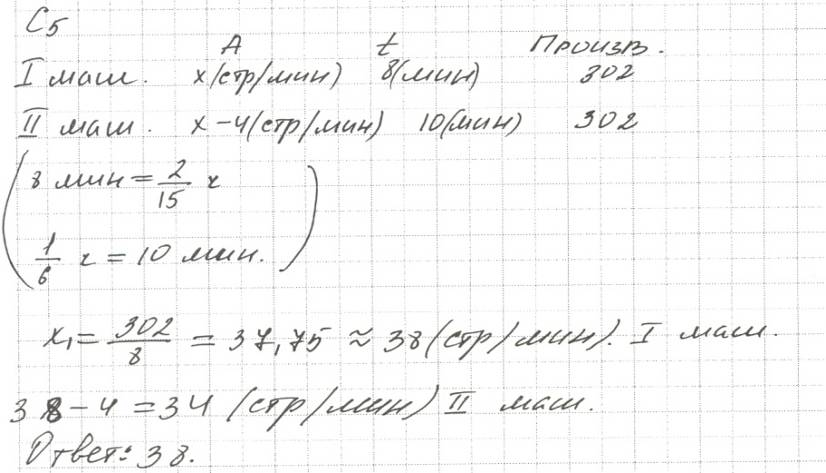 C5
A t Произв.
I маш. x(стр/мин) 8(мин) 302
II маш. x-4(стр/мин) 10(мин) 302
(8 мин = 2/15 ч
1/6 ч = 10 мин.)
x₁ = 302/8 = 37,75 ≈ 38(стр/мин). I маш.
38-4 = 34 (стр/мин) II маш.
Ответ: 38.